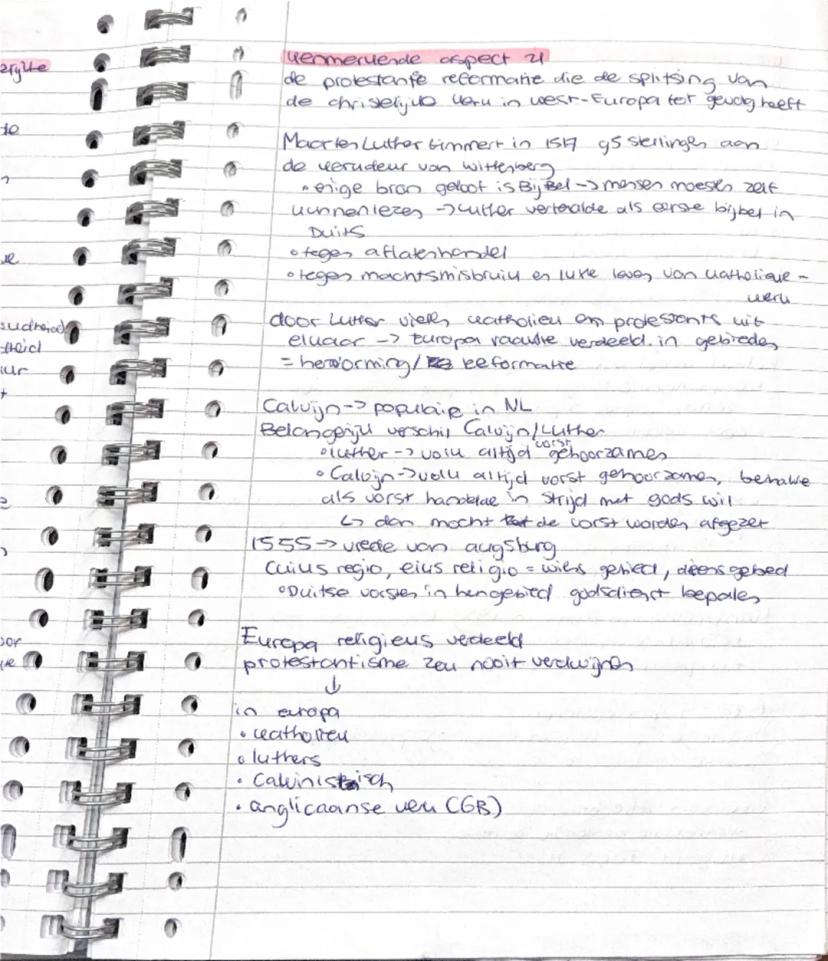 kenmerkende aspect 21
de protestante reformatie die de splitsing van
de christelijke kerk in west-Europa tot gevolg heeft
Maarten Luther timmert in 1517 95 stellingen aan
de kerkdeur van wittenberg
• enige bron geloof is Bijbel -> mensen moesten zelf
kunnen lezen -> Luther vertaalde als eerste bijbel in
Duits
• tegen aflatenhandel
• tegen machtsmisbruik en luxe leven van katholieke-
kerk
door Luther vielen katholiek en protestants uit
elkaar -> Europa raakte verdeeld in gebieden
= hervorming/ reformatie
Calvijn -> populair in NL
Belangrijk verschil Calvijn/Luther
• luther -> volk altijd vorst gehoorzamen
• Calvijn -> volk altijd vorst gehoorzamen, behalve
als vorst handelde in strijd met gods wil
↳ dan mocht de vorst worden afgezet
1555 -> vrede van augsburg
Cuius regio, eius religio = wiens gebied, diens gebed
• Duitse vorsten in hen gebied godsdienst bepalen
Europa religieus verdeeld
protestantisme zou nooit verdwijnen
↓
in europa
• katholiek
• luthers
• Calvinistisch
• anglicaanse kerk (GB)